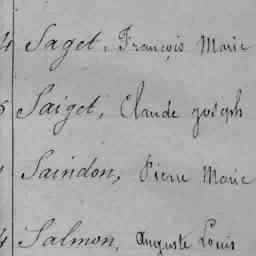 Saget, François Marie
Saiget, Claude joseph
Saindon, Pierre Marie
Salmon, Auguste Louis